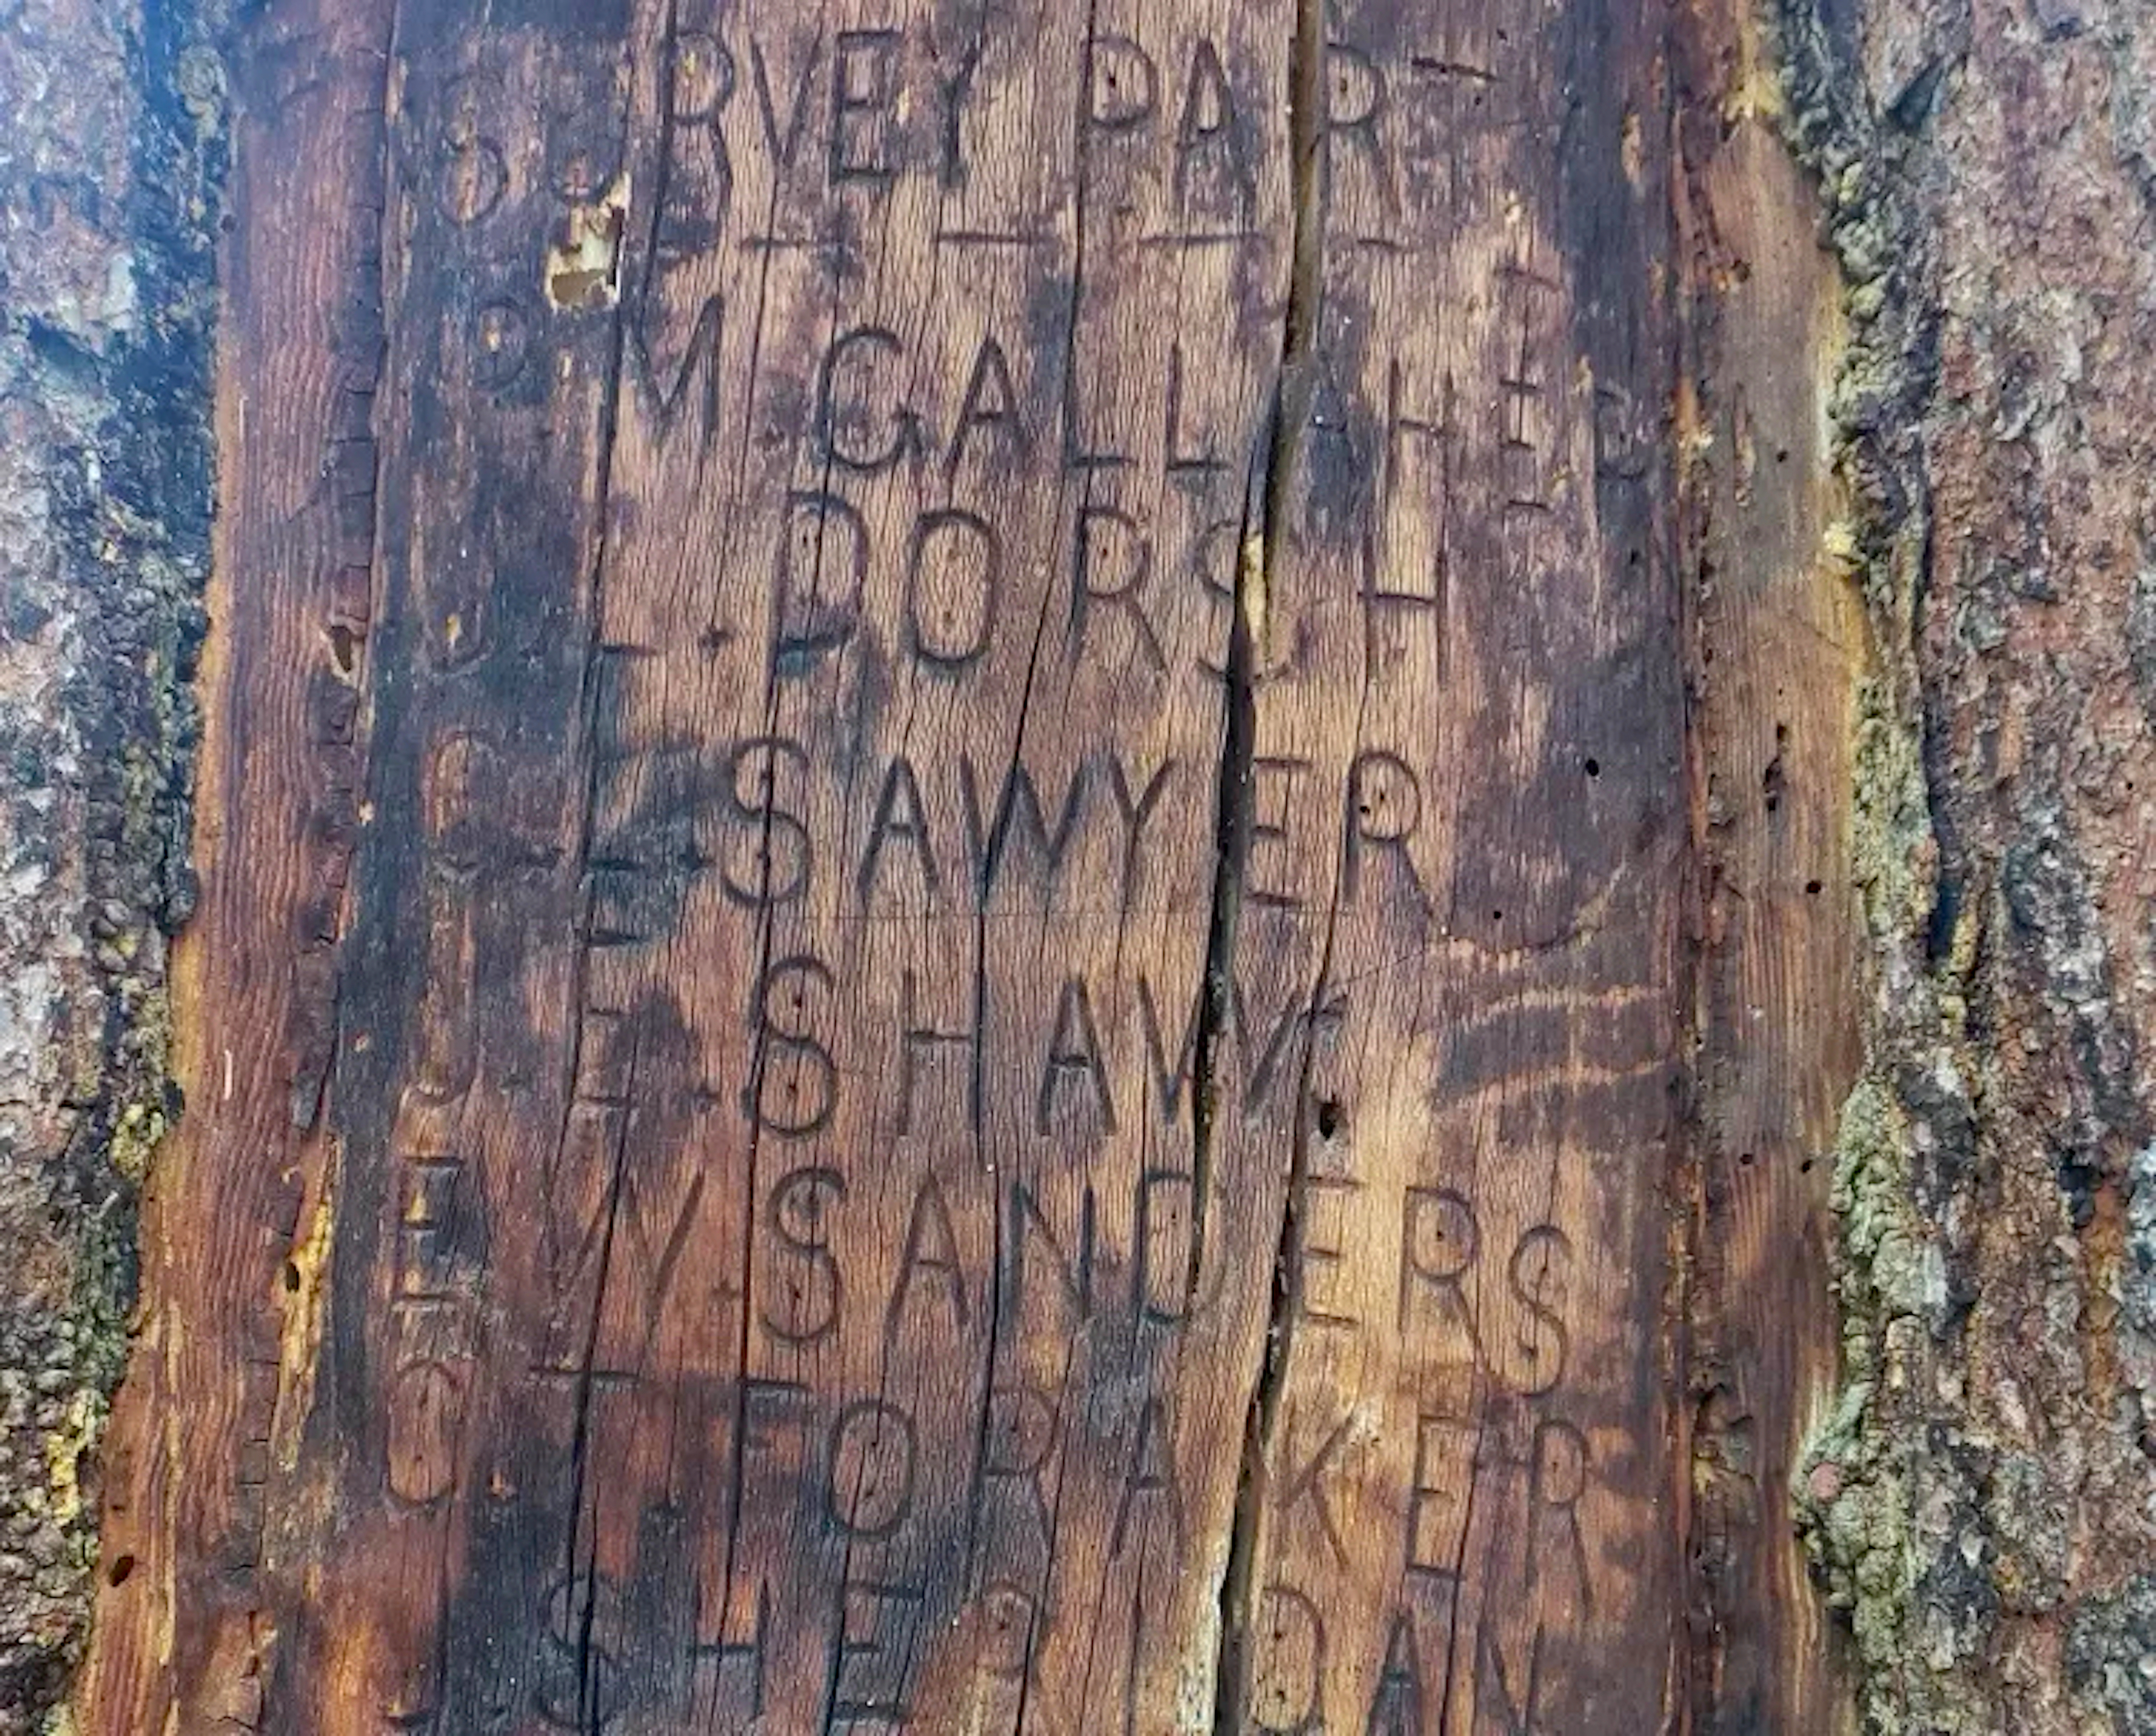 SURVEY PART
R M GALLAHER
J L DORSH
C E SAWYER
J E SHAW
E W SANDERS
C T FORAKER
SHERIDAN